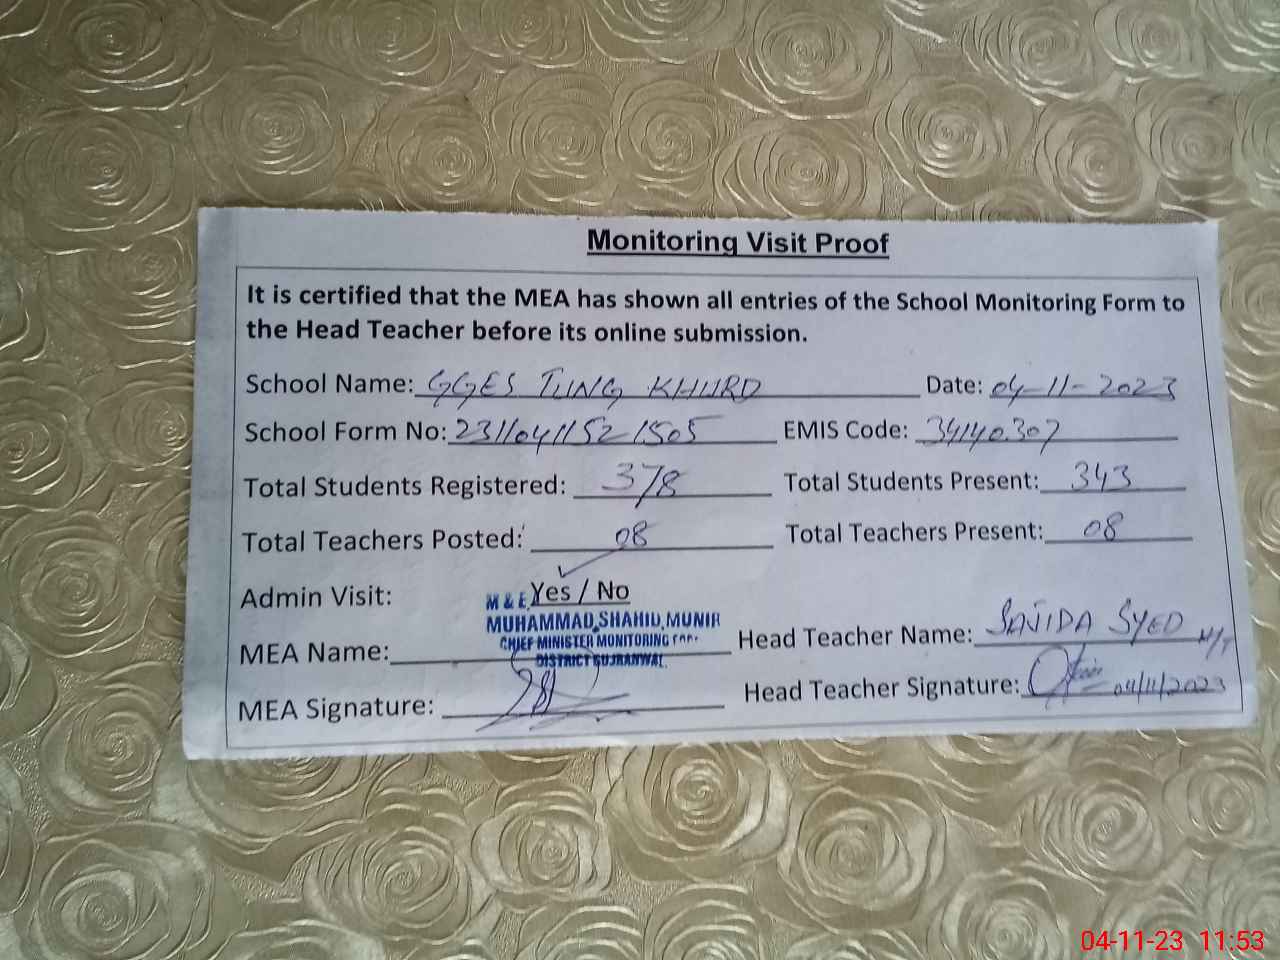 Monitoring Visit Proof
It is certified that the MEA has shown all entries of the School Monitoring Form to
the Head Teacher before its online submission.
School Name: GGES TUNG KHURD Date: 04-11-2023
School Form No: 23110411521505 EMIS Code: 34140307
Total Students Registered: 378 Total Students Present: 343
Total Teachers Posted: 08 Total Teachers Present: 08
Admin Visit: Yes / No
M & E
MUHAMMAD SHAHID MUNIR
CHIEF MINISTER MONITORING
DISTRICT GUJRANWAL
MEA Name: Head Teacher Name: SAJIDA SYED H/T
MEA Signature: Head Teacher Signature: 04/11/2023
04-11-23 11:53